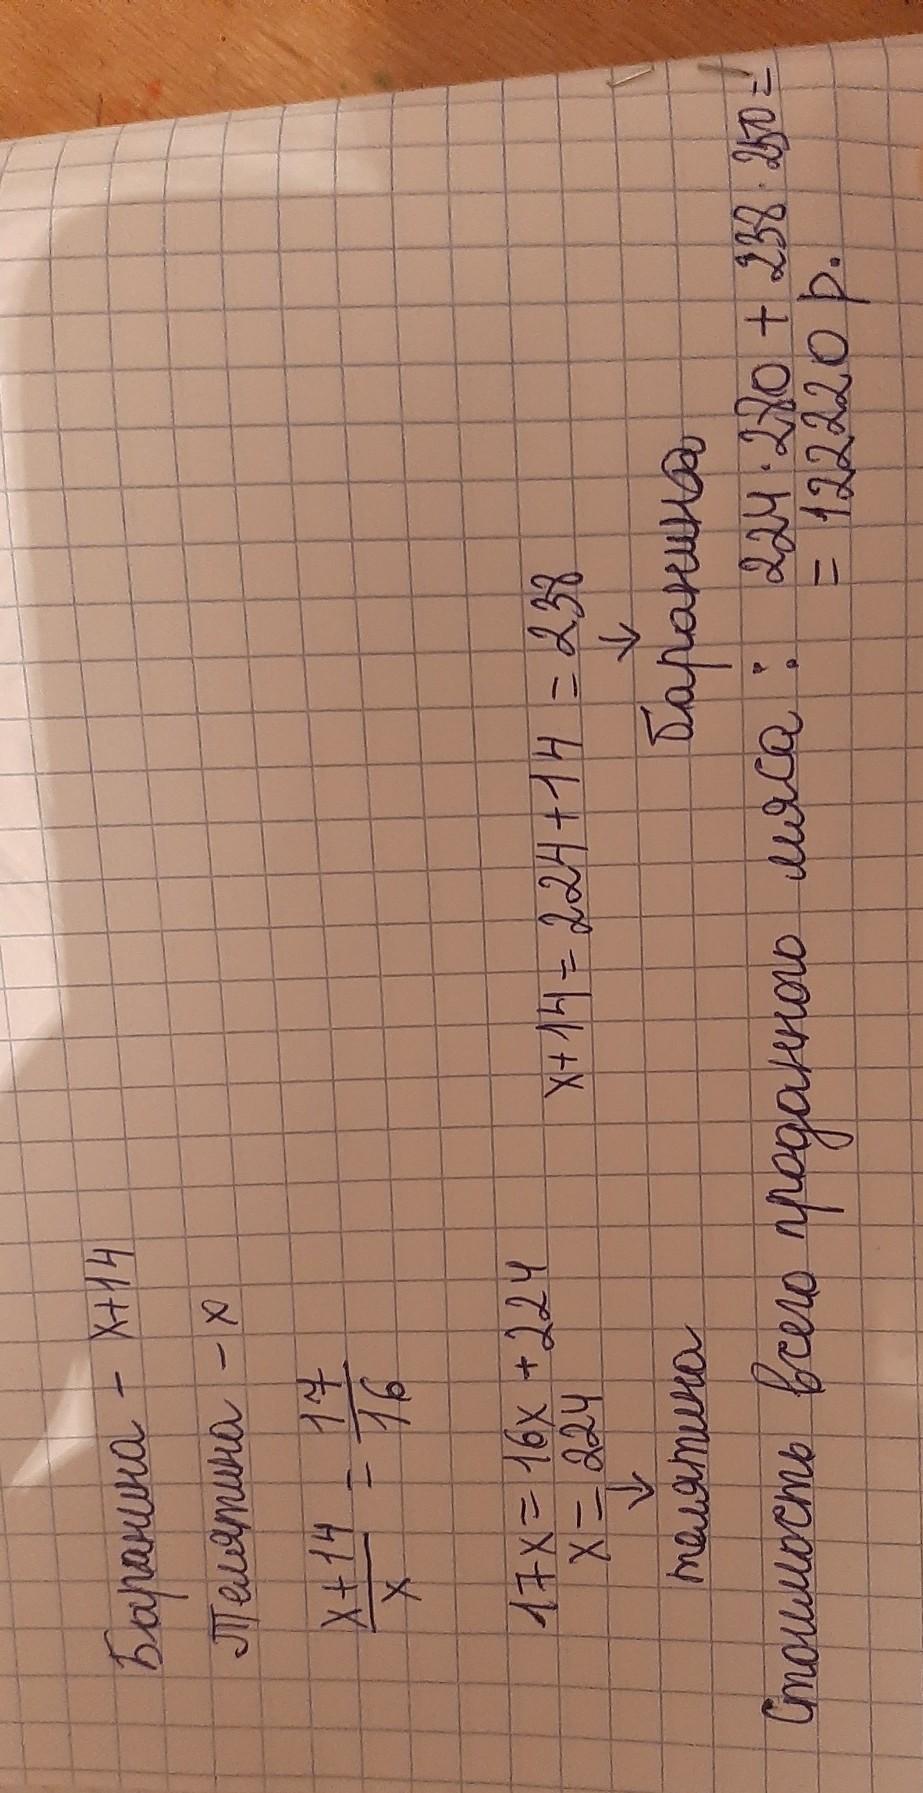 Баранина - x+14
Телятина - x
x+14/x - 17/16
17x = 16x + 224
x = 224
↓
телятина
x+14 = 224+14 = 238
↓
Баранина
Стоимость всего проданного мяса: 224·270 + 238·250 =
= 12220 р.